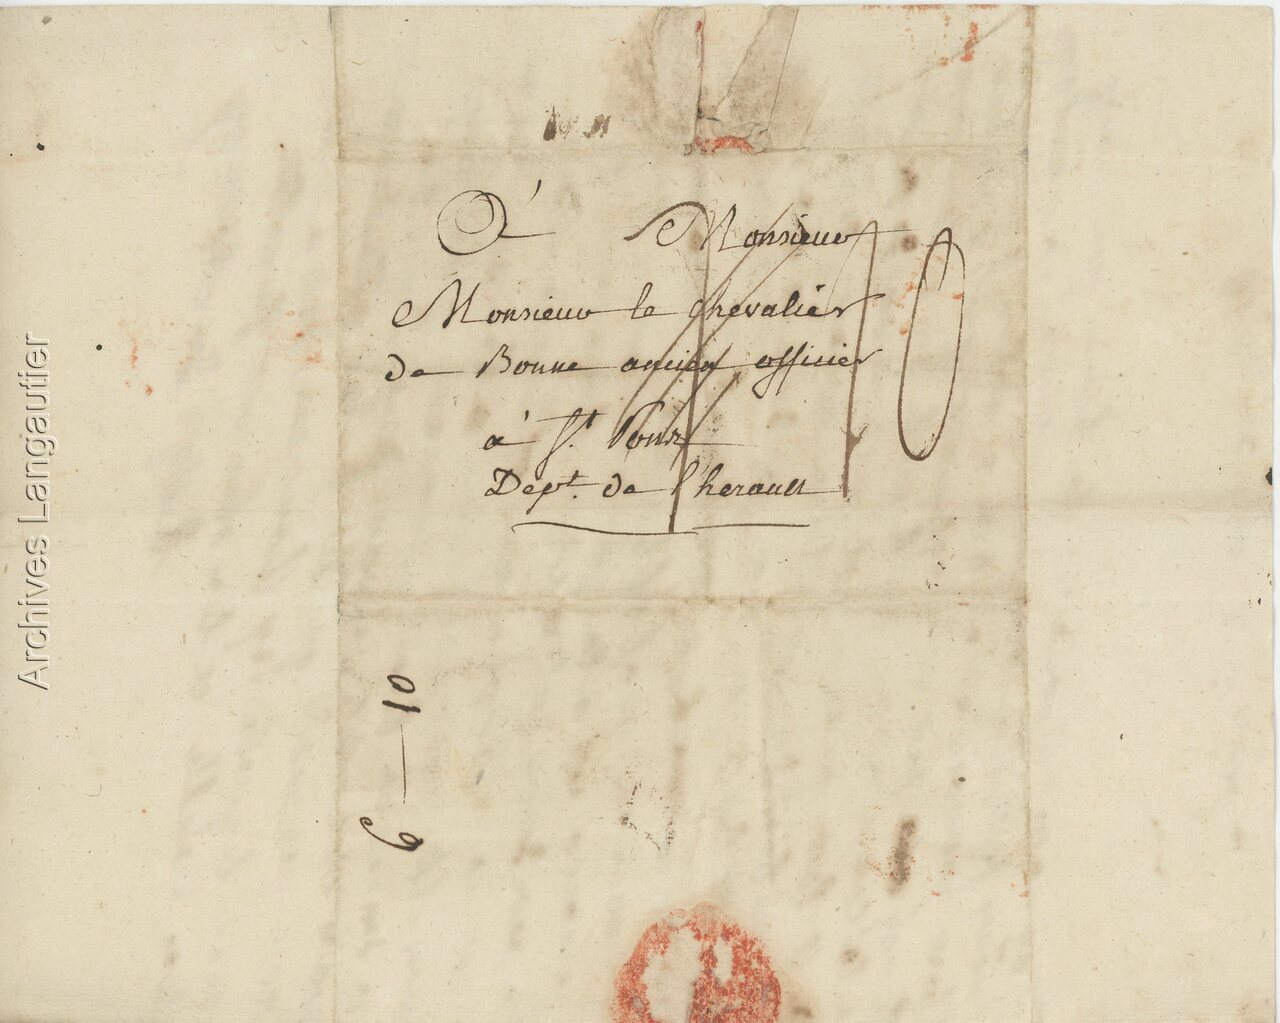 À Monsieur
Monsieur le chevalier
de Bonne ancien officier
à St. Pons
Dept. de l'herault
10
6 — 10
Archives Langautier